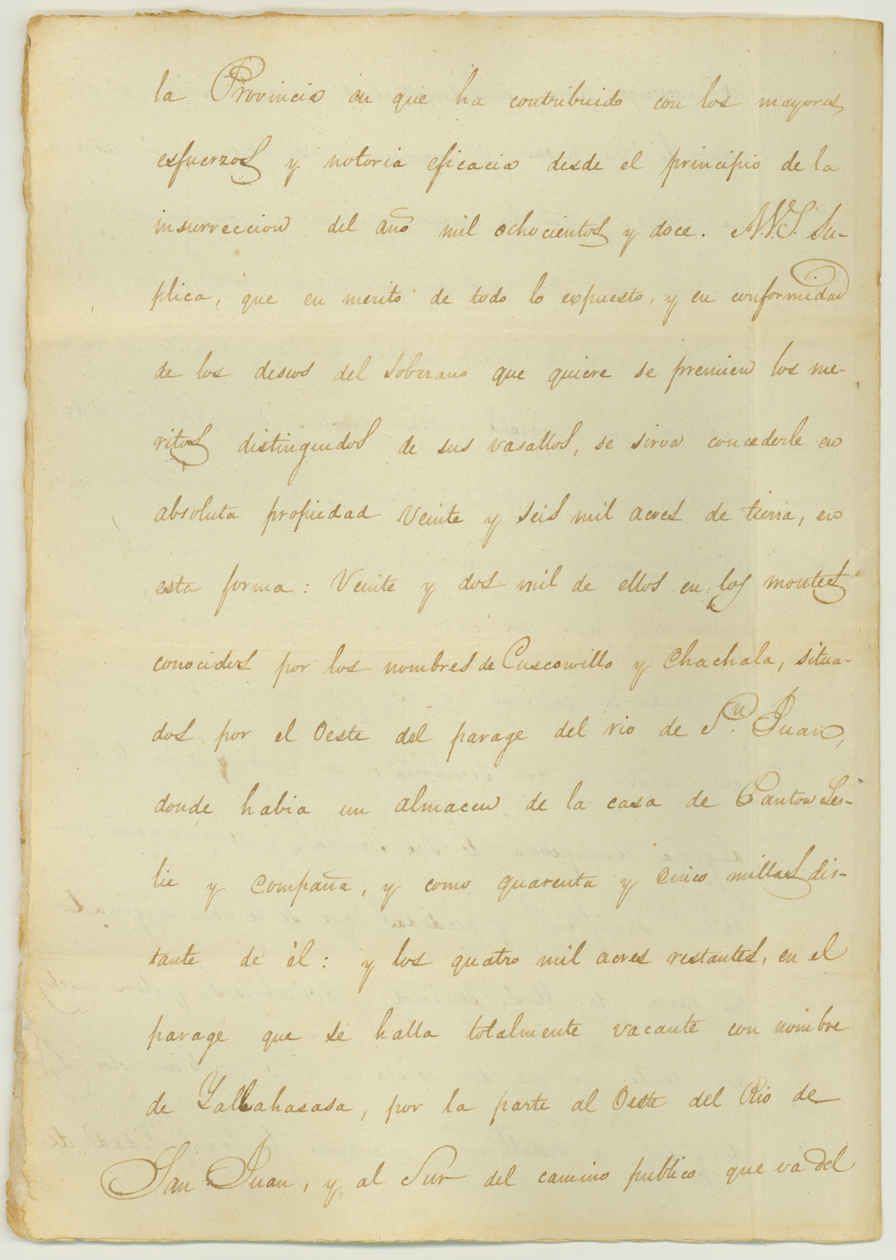 la Provincia en que ha contribuido con los mayores
esfuerzos y notoria eficacia desde el principio de la
insurreccion del año mil ochocientos y doce. A.V.S. Su-
plica, que en merito de todo lo expuesto, y en conformidad
de los deseos del Soberano que quiere se premien los me-
ritos distinguidos de sus vasallos, se sirva concederle en
absoluta propiedad Veinte y seis mil acres de tierra, en
esta forma: Veinte y dos mil de ellos en los montes
conocidos por los nombres de Cuscowillo y Chachala, situa-
dos por el Oeste del parage del rio de Sn. Juan,
donde habia un almacen de la casa de Panton Les-
lie y Compañia, y como quarenta y cinco millas dis-
tante de él: y los quatro mil acres restantes, en el
parage que se halla totalmente vacante con nombre
de Yallahasasa, por la parte al Oeste del Rio de
San Juan, y al Sur del camino publico que va del